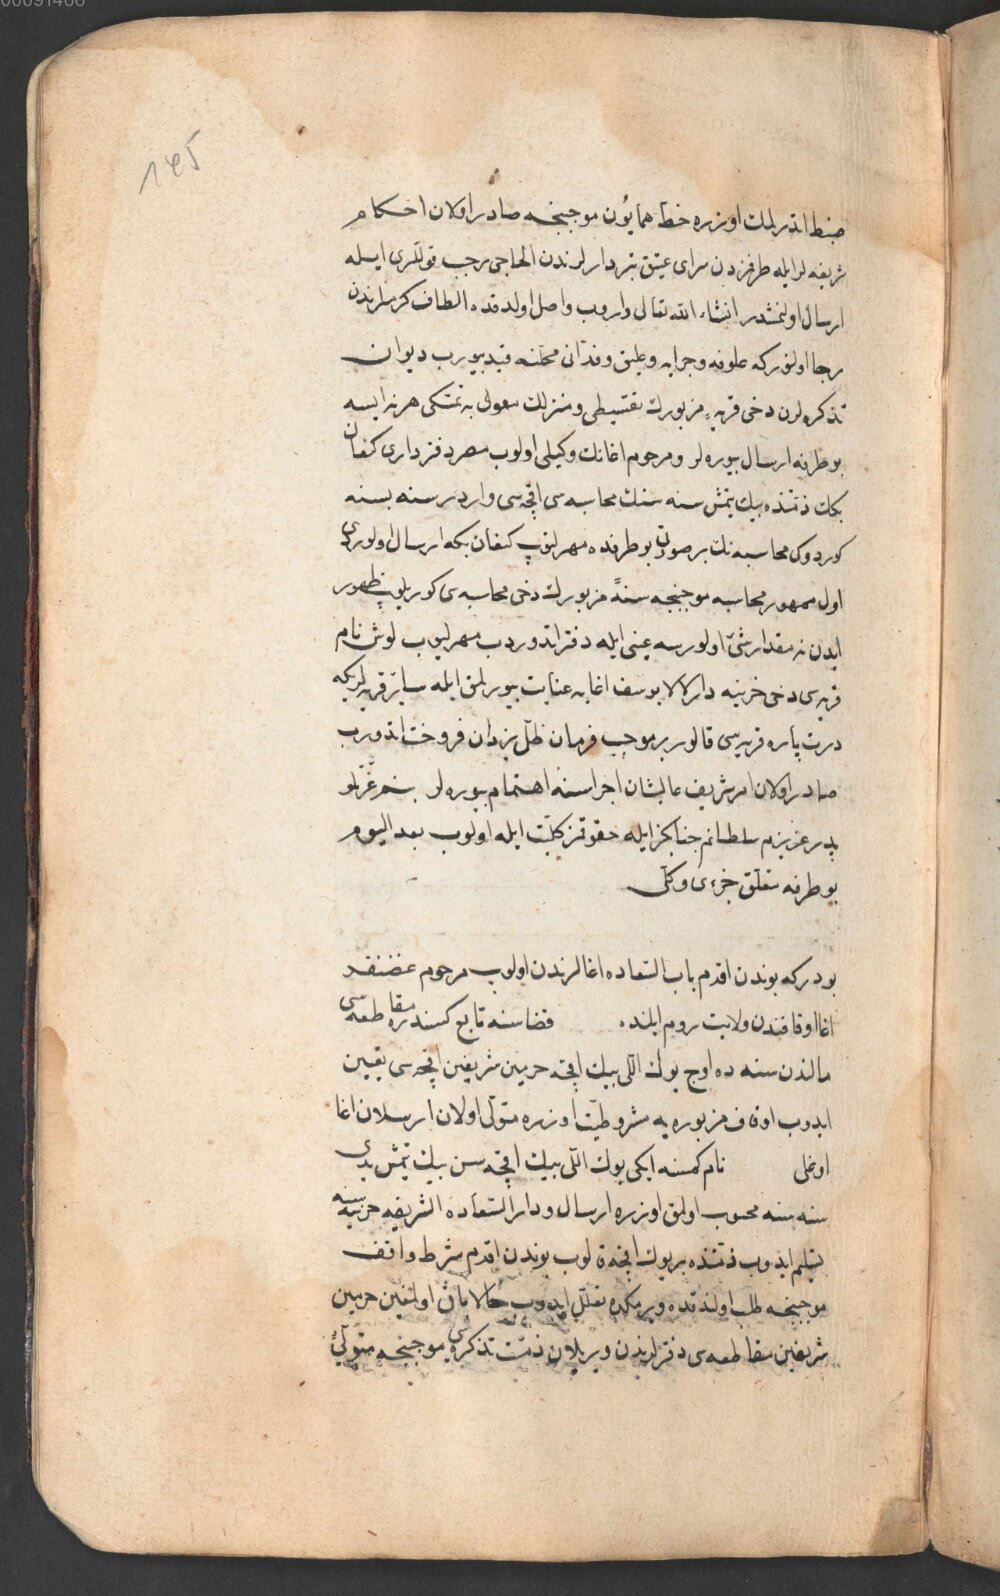 00091466
145
ضبط اتدرلمك اوزره خط همايون موجبنجه صادر اولان احكام
شريفه لر ايله طرفمزدن سراى عتيق تبردارلرندن الحاجى رجب قوللرى ايله
ارسال اولنمشدر انشاء الله تعالى واروب واصل اولدقده الطاف كريملرندن
رجا اولنوركه علوفه وجرايه وعليق وفدانى محلنه قيد بيورب ديوان
تذكره لرن دخى قريۀ مزبورك تقسيطى ومنزلك معمول به تمسكى هر نه ايسه
بو طرفه ارسال بيوره لر ومرحوم اغانك وكيلى اولوب مصر دفتردارى كنعان
بك ذمتنده بيك يتمش سنه سنك محاسبه سى اقچه سى واردر سنه بسنه
كوردوكى محاسبه نك بر صورتن بو طرفده مهرلنوب كنعان بكه ارسال اولوردى
اول ممهور محاسبه موجبنجه سنۀ مزبورك دخى محاسبه سى كوريلوب ظهور
ايدن نه مقدار شئ اولورسه عينى ايله دفتر اتدورب مهرليوب لوش نام
قريه سى دخى خزينه دار لالا يوسف اغايه عنايت بيورلمق ايله ساير قريه لريكه
درت پاره قريه سى قالور بر موجب فرمان ظل يزدان فروخت اتدورب
صادر اولان امر شريف عاليشان اجراسنه اهتمام بيوره لر بنم عزتلو
پدر عزيزم سلطانم جنابكز ايله حقوقمز كليت ايله اولوب بعد اليوم
بو طرفه متعلق جزءى وكلى
بودركه بوندن اقدم باب السعاده اغالرندن اولوب مرحوم غضنفر
اغا اوقافندن ولايت روم ايلنده قضاسنه تابع كسندره مقاطعه سى
مالندن سنه ده اوچ يوك اللى بيك اقچه حرمين شريفين اقچه سى تعيين
ايدوب اوقاف مزبوره يه مشروطيت اوزره متولى اولان ارسلان اغا
اوغلى نام كمسنه ايكى يوك اللى بيك اقچه سن بيك يتمش يدى
سنه سنه محسوب اولمق اوزره ارسال ودار السعاده الشريفه خزينه سنه
تسليم ايدوب ذمتنده بر يوك اقچه قلوب بوندن اقدم شرط واقف
موجبنجه طلب اولندقده ويرمكده تعلل ايدوب حالا باقى اولمغين حرمين
شريفين مقاطعه سى دفترلرندن ويريلان ذمت تذكره سى موجبنجه متولئ